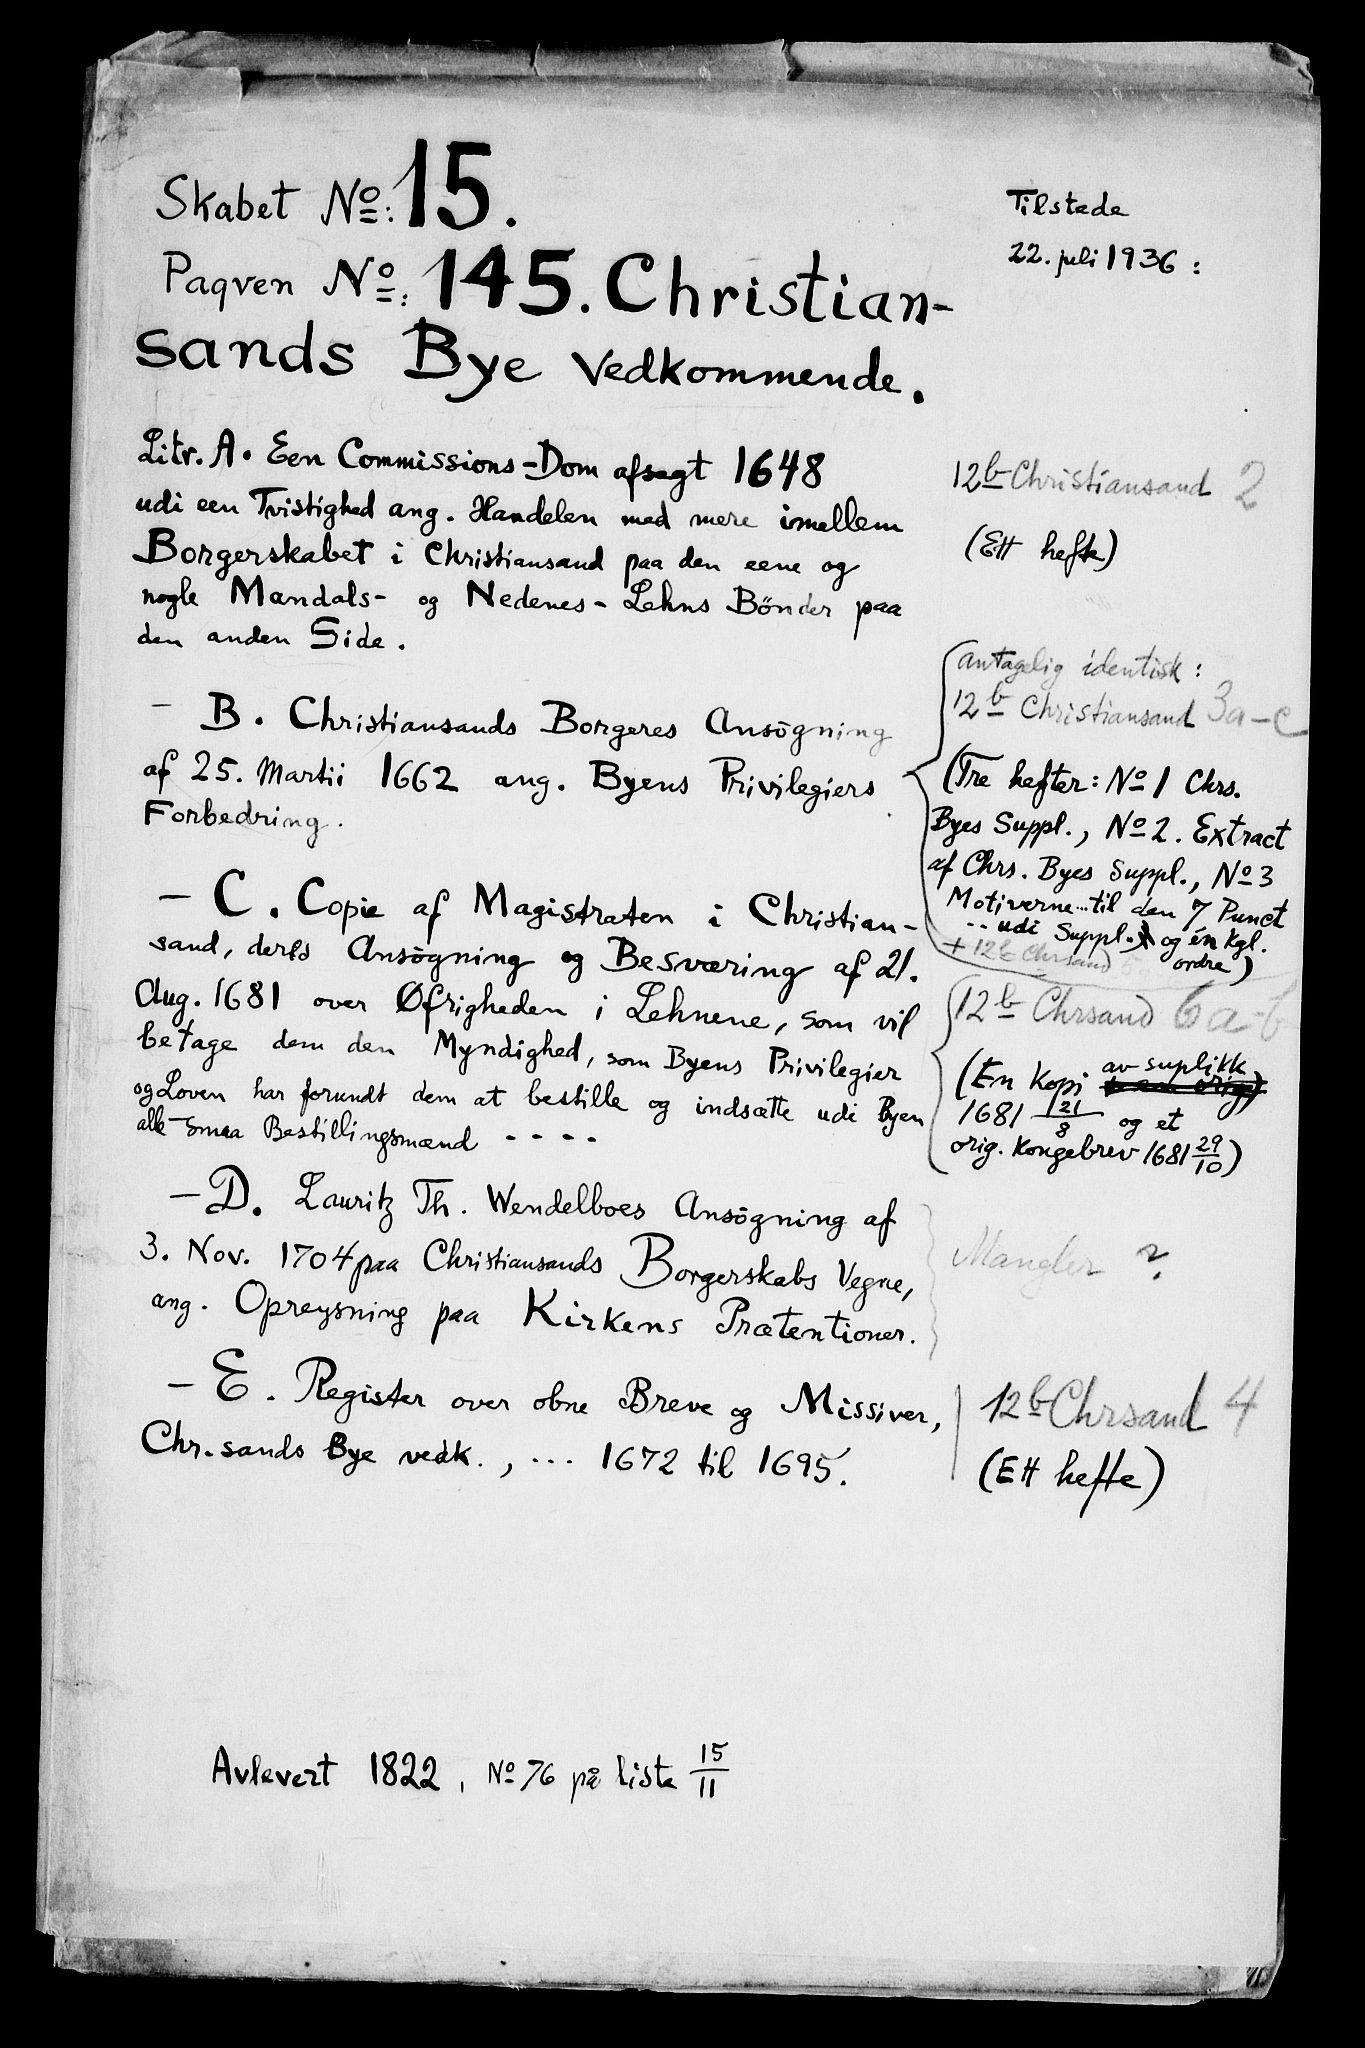 Skabet No: 15.
Paqven No: 145. Christian-
sands Bye Vedkommende.
Tilstede
22. juli 1936 :
Litr. A. Een Commissions-Dom afsagt 1648
udi een Tvistighed ang. Handelen med mere imellem
Borgerskabet i Christiansand paa den eene og
nogle Mandals- og Nedenes-Lehns Bönder paa
den anden Side.
12b Christiansand 2
(Ett hefte)
- B. Christiansands Borgeres Ansögning
af 25. Martii 1662 ang. Byens Privilegiers
Forbedring.
antagelig identisk :
12b Christiansand 3a-c
(Tre hefter: No 1 Chrs.
Byes Suppl., No 2. Extract
af Chrs. Byes Suppl., No 3
Motiverne...til den 7 Punct
.. udi Suppl. og én kgl.
ordre)
+ 12b Chrsand
- C. Copie af Magistraten i Christian-
sand, deres Ansögning og Besværing af 21.
Aug. 1681 over Øfrigheden i Lehnene, som vil
betage dem den Myndighed, som Byens Privilegier
og Loven har forundt dem at bestille og indsætte udi Byen
alle smaa Bestillingsmænd - - - -
12b Chrsand 6a-b
(En kopi av suplikk
1681 21/8 og et
orig. kongebrev 1681 29/10)
- D. Lauritz Th. Wendelboes Ansögning af
3. Nov. 1704 paa Christiansands Borgerskabs Vegne,
ang. Opreysning paa Kirkens Prætentioner.
Mangler ?
- E. Register over obne Breve og Missiver,
Chr.sands Bye vedk., ... 1672 til 1695.
12b Chrsand 4
(Ett hefte)
Avlevert 1822, No 76 på liste 15/11